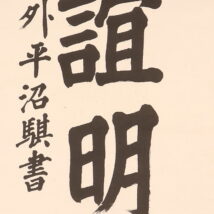 誼明
外平沼騏書